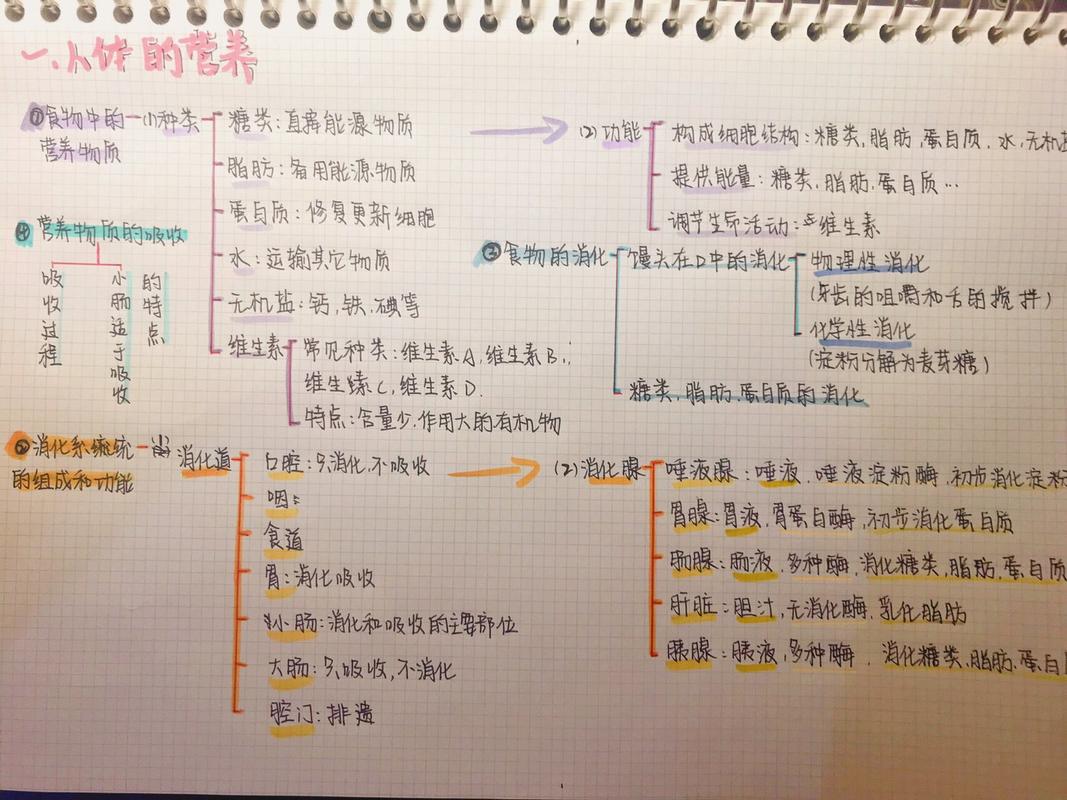 一.人体的营养
①食物中的
营养物质
(1)种类
糖类:直接能源物质
脂肪:备用能源物质
蛋白质:修复更新细胞
水:运输其它物质
无机盐:钙,铁,碘等
维生素
常见种类:维生素A,维生素B,
维生素C,维生素D.
特点:含量少.作用大的有机物
(2)功能
构成细胞结构:糖类,脂肪,蛋白质,水,无机
提供能量:糖类,脂肪,蛋白质…
调节生命活动:维生素
④营养物质的吸收
吸收过程
小肠适于吸收
的特点
食物的消化
馒头在口中的消化
物理性消化
(牙齿的咀嚼和舌的搅拌)
化学性消化
(淀粉分解为麦芽糖)
糖类,脂肪.蛋白质的消化
消化系统
的组成和功能
(1)
消化道
口腔:只消化,不吸收
咽:
食道
胃:消化吸收
小肠:消化和吸收的主要部位
大肠:只吸收,不消化
肛门:排遗
(2)消化腺
唾液腺:唾液,唾液淀粉酶,初步消化淀粉
胃腺:胃液,胃蛋白酶,初步消化蛋白质
肠腺:肠液,多种酶,消化糖类,脂肪,蛋白质
肝脏:胆汁,无消化酶,乳化脂肪
胰腺:胰液,多种酶,消化糖类,脂肪,蛋白